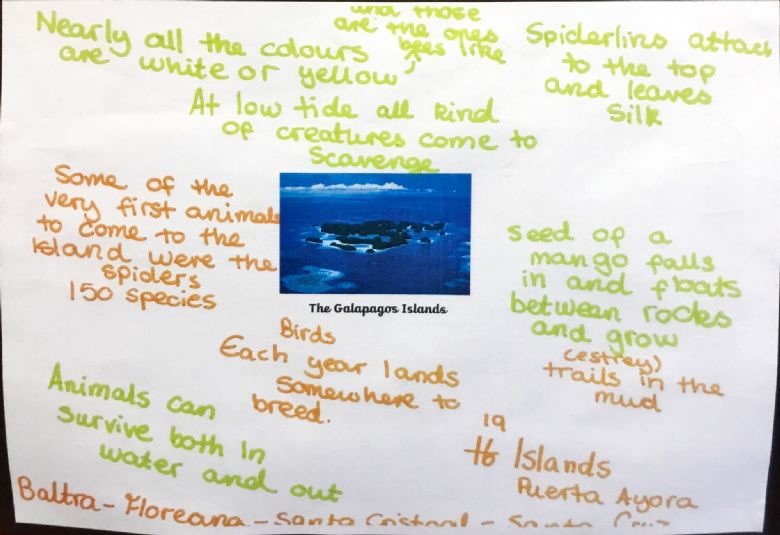 Nearly all the colours
are white or yellow,
and those
are the ones
bees like
Spiderlins attach
to the top
and leaves
Silk
At low tide all kind
of creatures come to
Scavenge
Some of the
very first animals
to come to the
Island were the
spiders
150 species
The Galapagos Islands
seed of a
mango falls
in and floats
between rocks
and grow
(estrey)
trails in the
mud
Birds
Each year lands
somewhere to
breed.
Animals can
survive both in
water and out
19
16 Islands
Puerta Ayora
Baltra - Floreana - Santa Cristoal - Santa Cruz